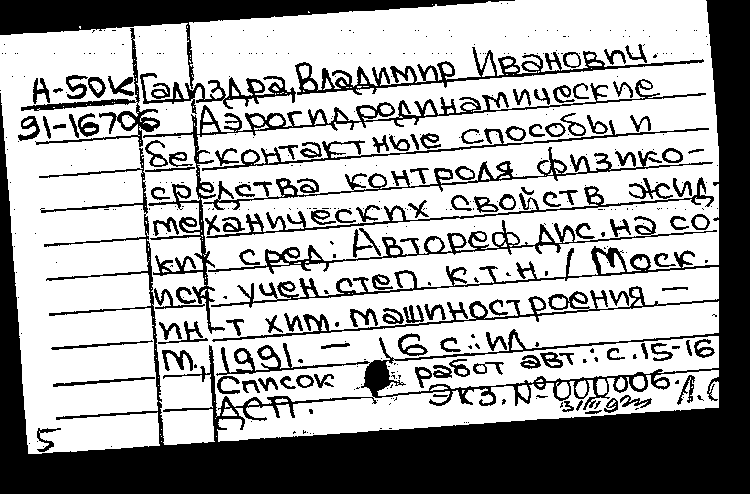 А-50К Гализдра, Владимир Иванович.
91-16706 Аэрогидродинамические
бесконтактные способы и
средства контроля физико-
механических свойств жид-
ких сред: Автореф. дис. на со-
иск. учен. степ. к.т.н. / Моск.
ин-т хим. машиностроения. –
М., 1991. – 16 с.: ил.
Список работ авт.: с. 15-16
ДСП. Экз. № 000006.
5